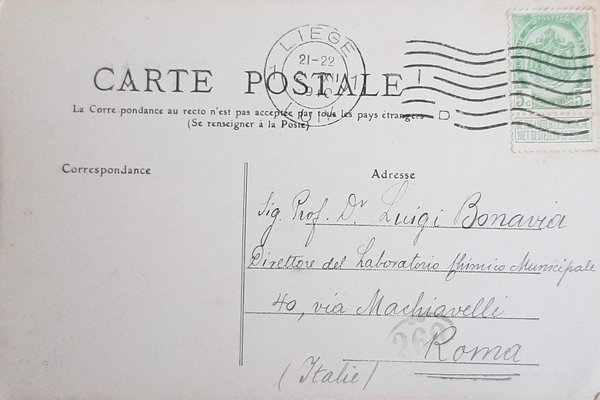 LIEGE
21-22
CARTE POSTALE
La Corre pondance au recto n'est pas acceptée par tous les pays étrangers
(Se renseigner à la Poste)
Correspondance
Adresse
Sig. Prof. Dr Luigi Bonavia
Direttore del Laboratorio Chimico Municipale
40, via Machiavelli
Roma
(Italie)
260
5c